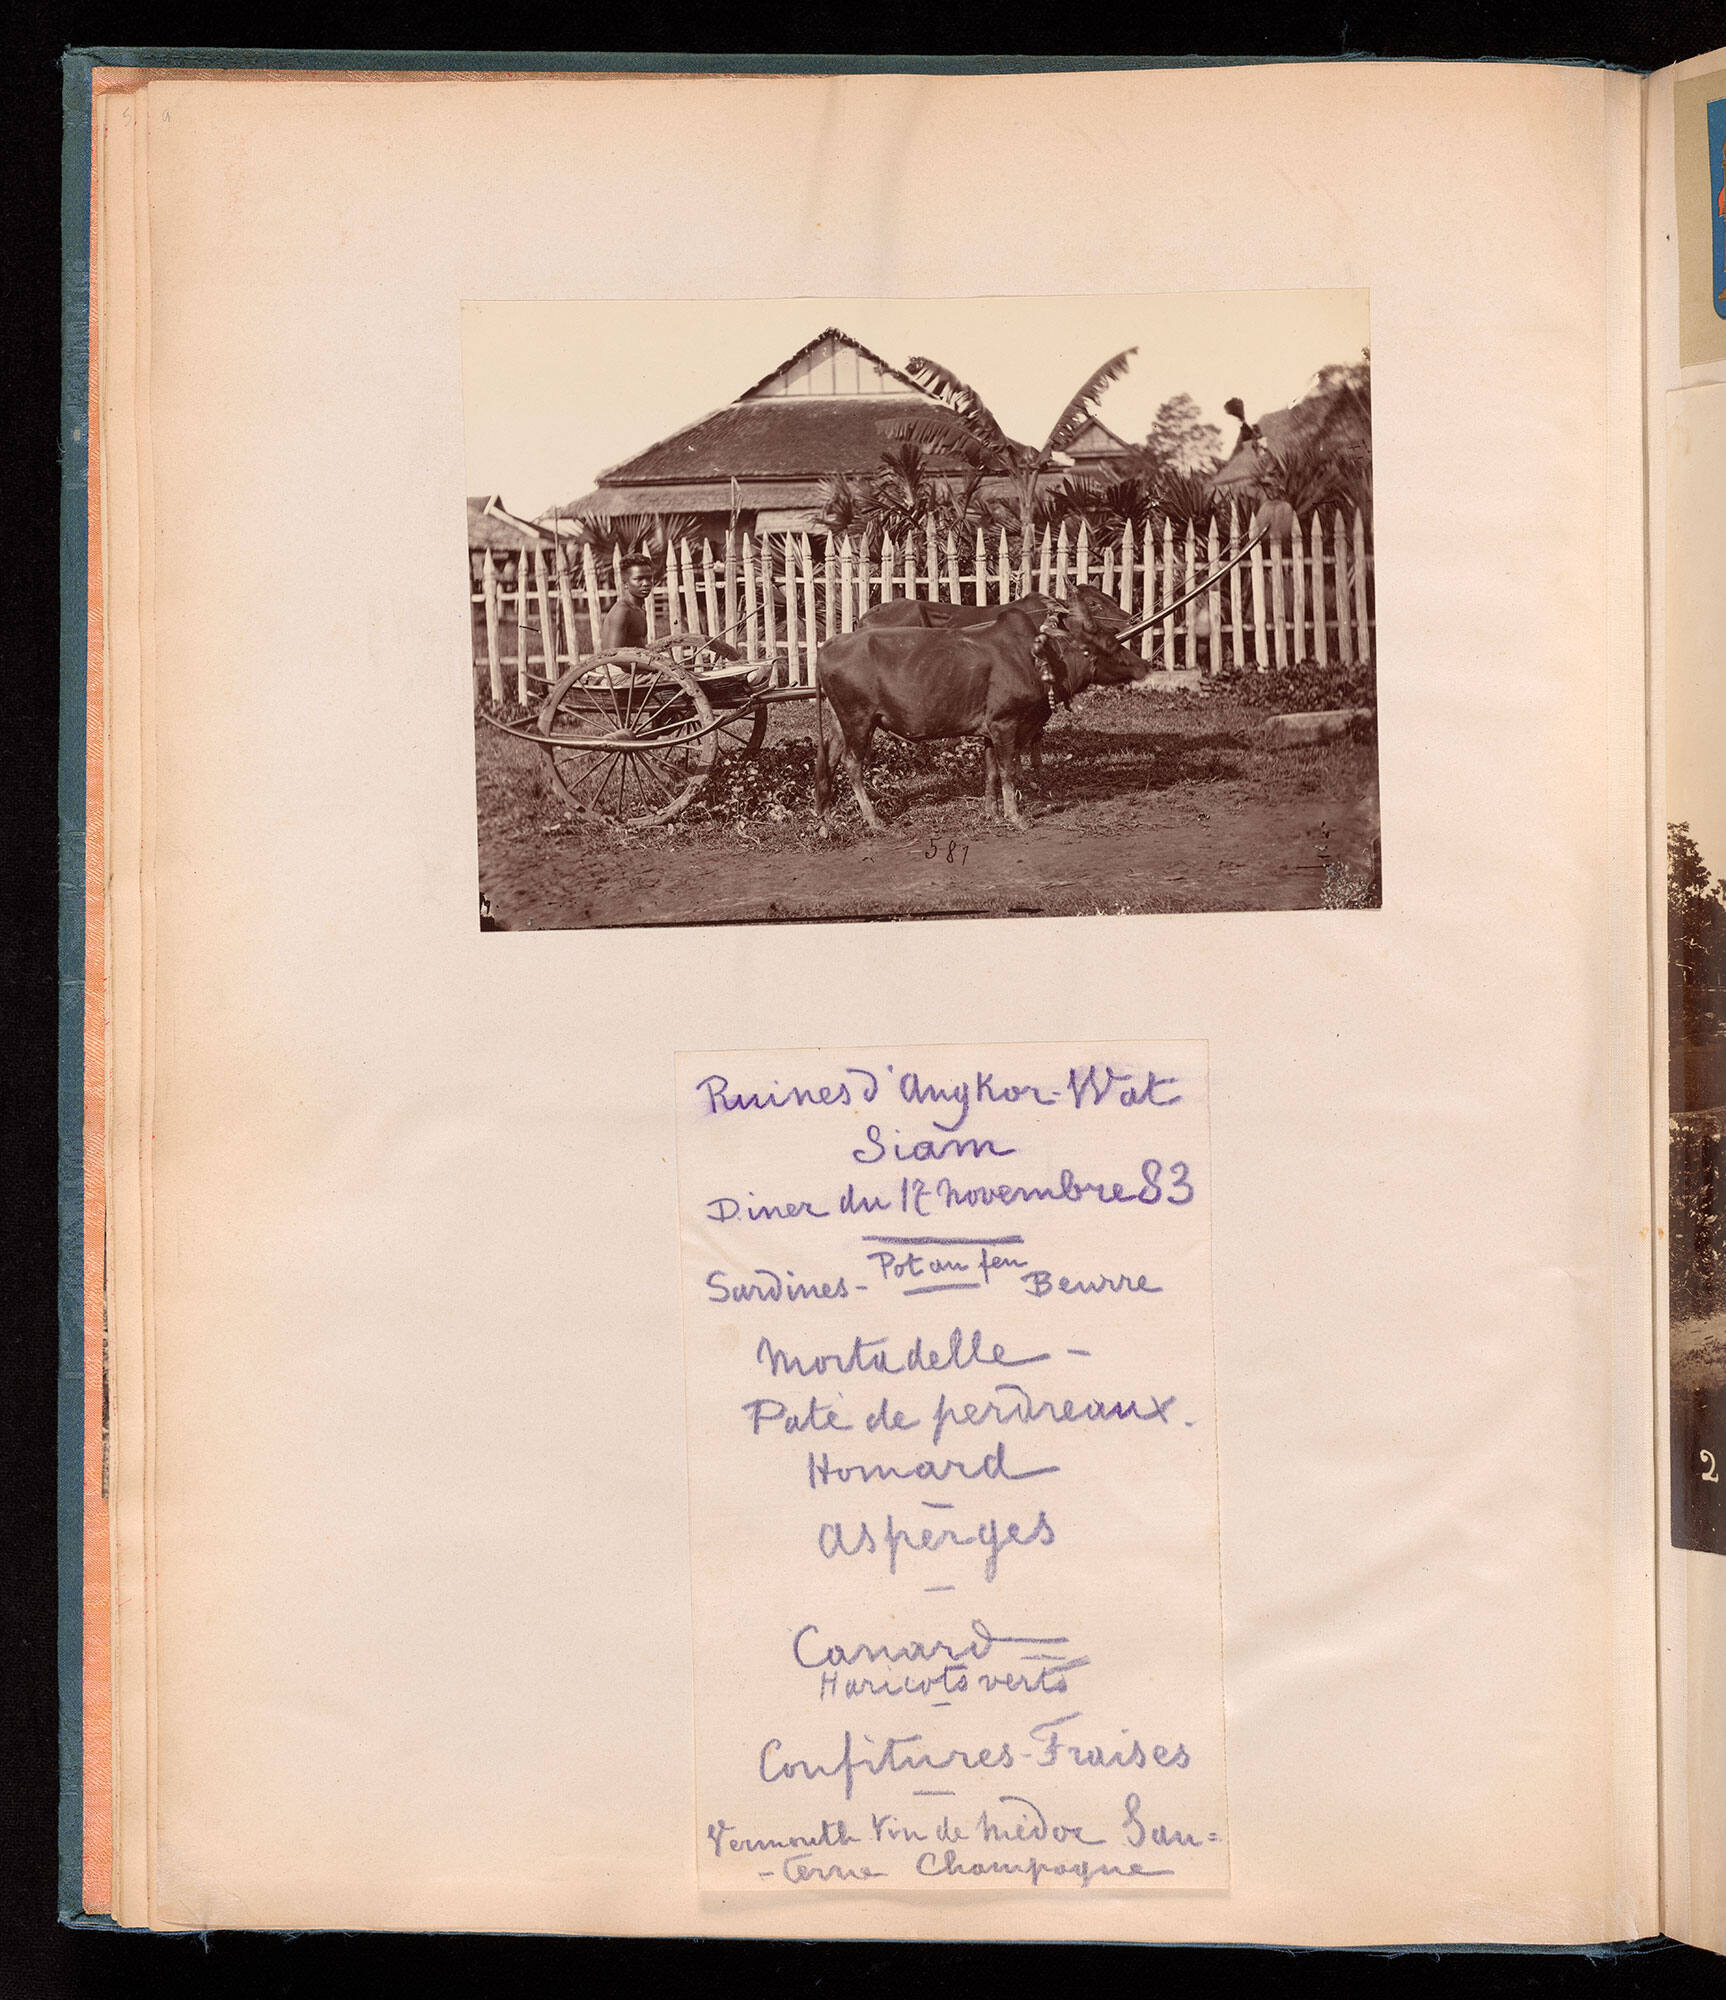 5. a
581
Ruines d'Angkor-Wat
Siam
Diner du 17 Novembre 83
Pot au feu
Sardines - Beurre
Mortadelle -
Paté de perdreaux.
Homard
Asperges
Canard
Haricots verts
Confitures - Fraises
Vermouth Vin de Médoc Sau=
-terne Champagne
2